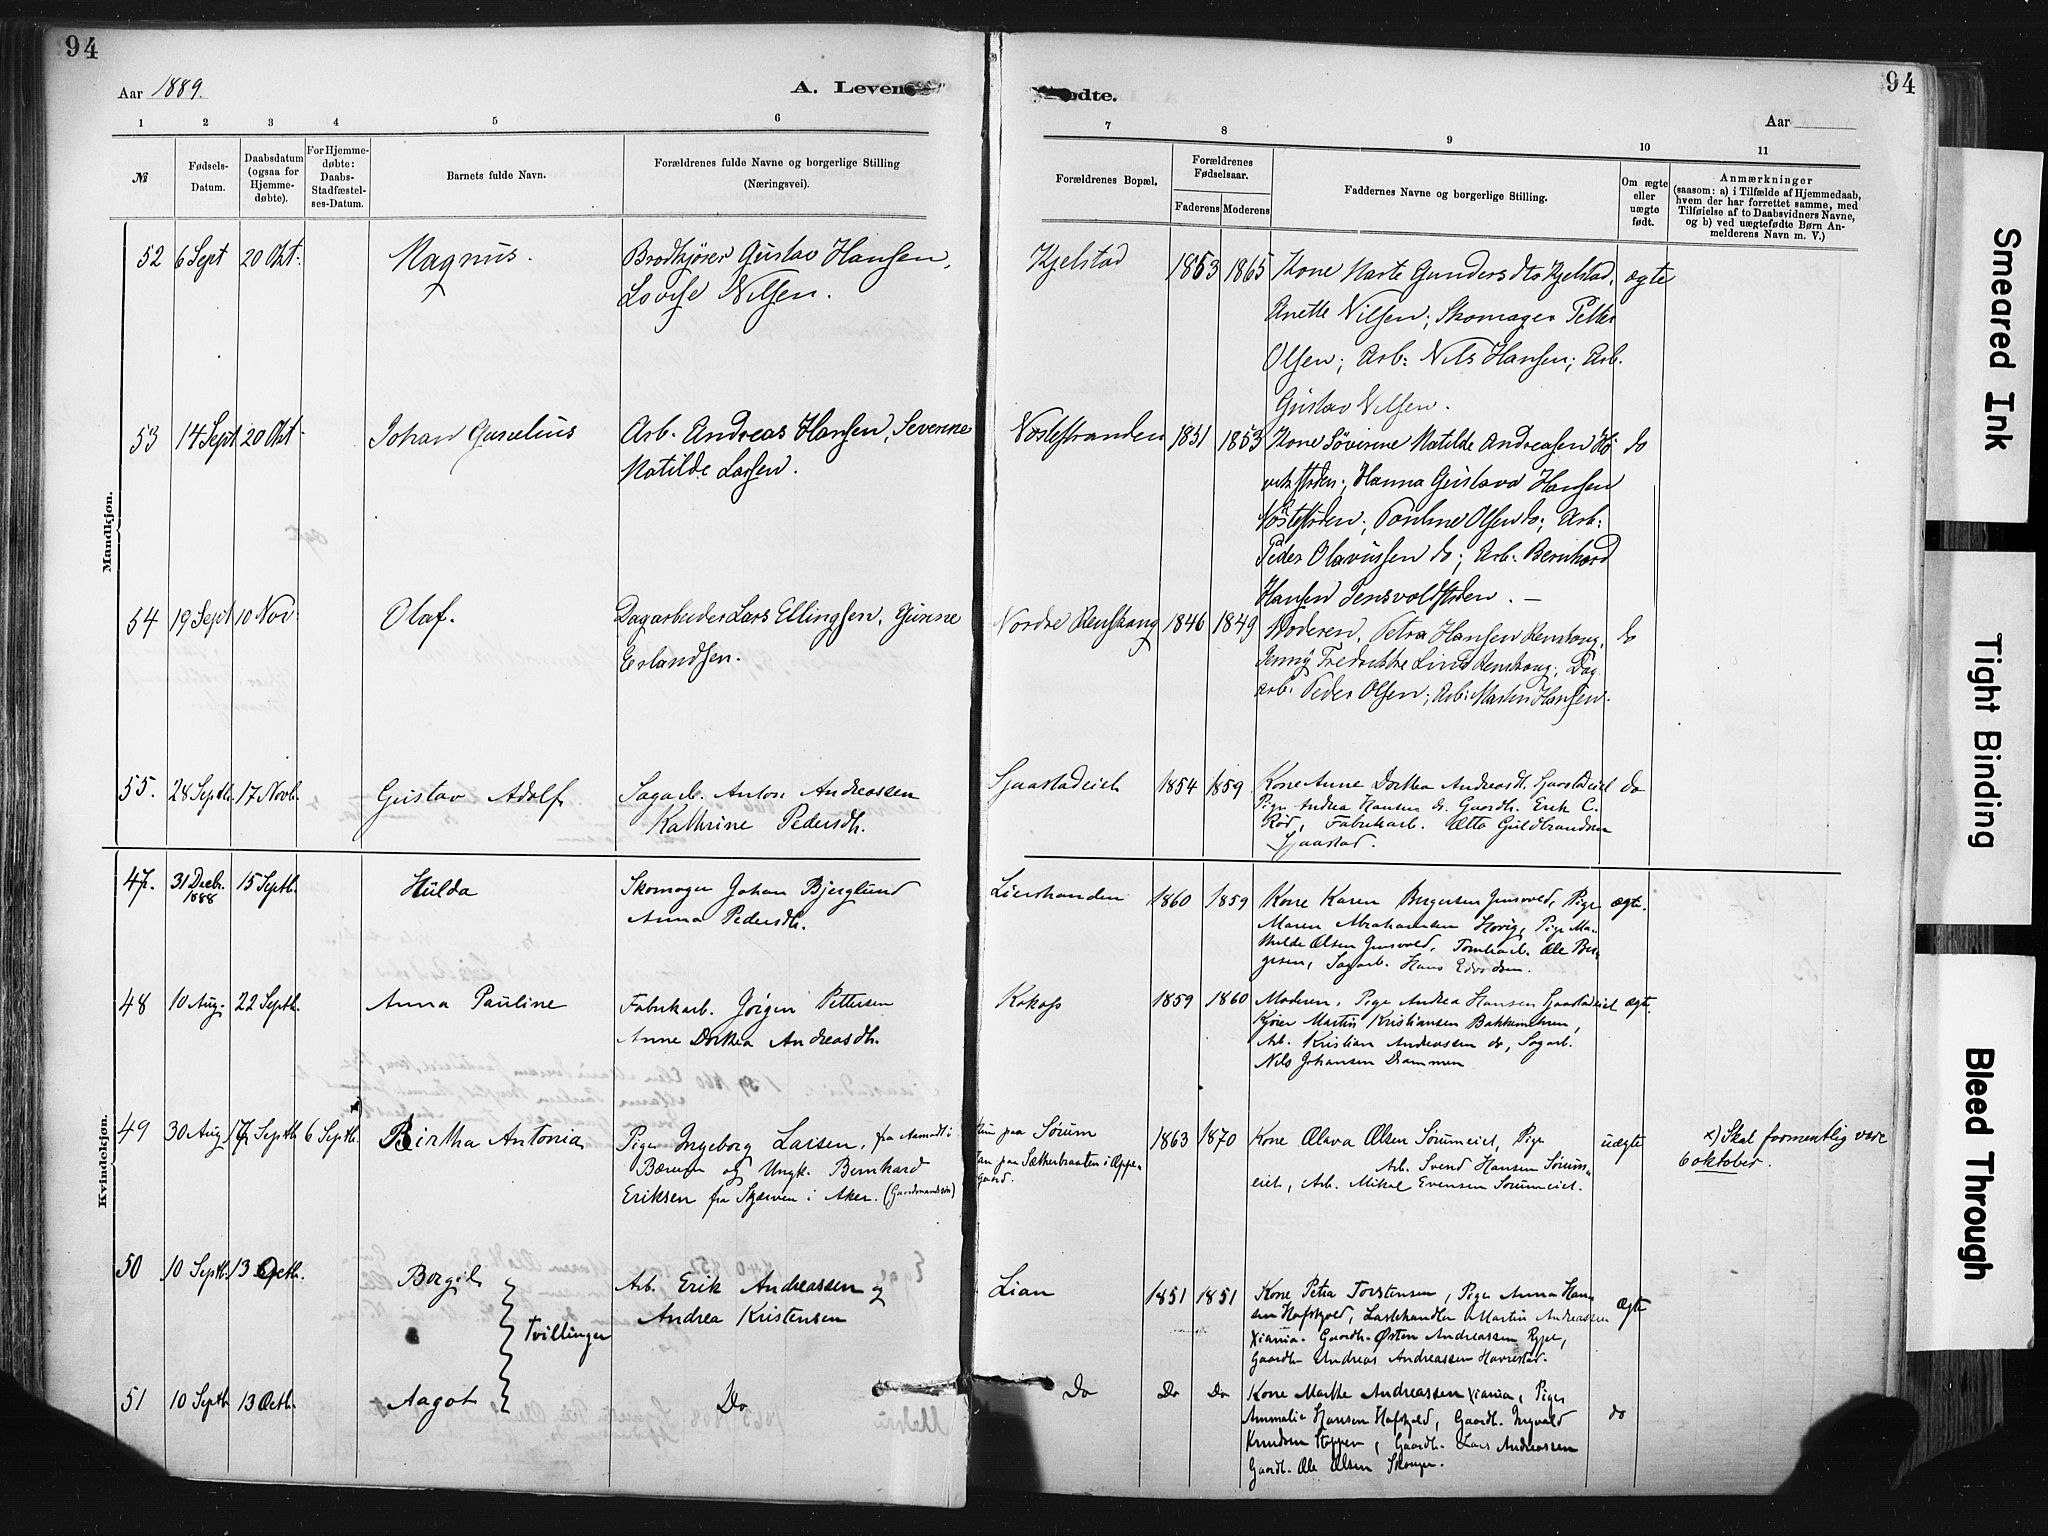 94
94
Aar 1889.
A. Leven
ødte.
Aar
1 2 3 4 5 6 7 8 9 10 11
№
Fødsels-
Datum.
Daabsdatum
(ogsaa for
Hjemme-
døbte).
For Hjemme-
døbte:
Daabs-
Stadfæstel-
ses-Datum.
Barnets fulde Navn.
Forældrenes fulde Navne og borgerlige Stilling
(Næringsvei).
Forældrenes Bopæl.
Forældrenes
Fødselsaar.
Faderens Moderens
Faddernes Navne og borgerlige Stilling.
Om ægte
eller
uægte
født.
Anmærkninger
(saasom: a) i Tilfælde af Hjemmedaab,
hvem der har forrettet samme, med
Tilføielse af to Daabsvidners Navne,
og b) ved uægtefødte Børn An-
melderens Navn m. V.)
Mandkjøn.
52 6 Sept 20 Okt. Magnus. Brødkjører Gustav Hansen,
Lovise Nilsen.
Kjelstad 1863 1865 Kone Marte Gundersdtr Kjelstad, ægte
Anette Nilsen; Skomager Petter
Olsen; Arb. Nils Hansen; Arb.
Gustav Nilsen.
53 14 Sept 20 Okt. Johan Guselius Arb. Andreas Hansen, Severine
Matilde Larsen.
Nøstestranden 1851 1853 Kone Søverine Matilde Andreasen do
Hanna Gustava Hansen
Pauline Olsen do; Arb:
Peder Olavussen do; Arb. Bernhard
Hansen
54 19 Sept 10 Nov. Olaf. Dagarbeider Lars Ellingsen, Gunine
Erlandsen.
Nordre Renskoug 1846 1849 Moderen, Petra Hansen Renskoug, do
Jenny Fredrikke Lind Renskoug; Dag
arb. Peder Olsen; Arb: Martin Hansen.
55. 28 Septb. 17 Novb. Gustav Adolf Sagarb. Anton Andreassen
Kathrine Pedersdh.
Gjaastadeiet 1854 1859 Kone Anne Dorthea Andreasdh. Gjaastadeiet do
Pige Andrea Hansen do. Gaardb. Erik C.
Rød, Fabrikarb. Otto Guldbrandsen
Gjaastad.
Kvindekjøn.
47. 31 Decb. 1888 15 Septb. Hulda Skomager Johan Bjerglund
Anna Pedersdh.
Lierstranden 1860 1859 Kone Karen Bergersen Gjensvold, Pige ægte.
Maren Abrahamsen Hovig, Pige Ma-
thilde Olsen Gjensvold, Tomtearb. Ole Ber-
gesen, Sagarb. Hans Edvardsen.
48 10 Aug. 22 Septb. Anna Pauline Fabrikarb. Jørgen Pettersen
Anne Dorthea Andreasdh.
Kokoss 1859 1860 Moderen, Pige Andrea Hansen Gjaastadeiet ægte.
Kjører Martin Kristiansen Bakkenehren,
Arb. Kristian Andreassen do, Sagarb.
Nils Johansen Drammen
49 30 Aug. 17 Septb. 6 Septb. x Birtha Antonia Pige Ingeborg Larsen, fra Aamodt i
Bærum og Ungk. Bernhard
Eriksen fra Skjerven i Aker. (Gaardmandssøn)
Hun paa Sørum
Han paa Sætherbraaten i Oppe-
gaard.
1863 1870 Kone Olava Olsen Sørumeiet, Pige uægte
Arb. Svend Hansen Sørums-
eiet, Arb. Mikal Evensen Sørumeiet.
x) Skal formentlig være
6 oktober.
50 10 Septb. 13 Octb. Borgil Arb. Erik Andreassen og
Andrea Kristensen
Tvillinger
Lian 1851 1851 Kone Petra Torstensen, Pige Anna Han-
sen Hafskjold, Lastehandler Martin Andreassen ægte
Xiania. Gaardb. Østen Andreassen Rype,
Gaardb. Andreas Andreassen Havrestad.
51 10 Septb. 13 Octb. Aagot Do
Do Do Do Kone Marthe Andreassen Xiania, Pige
Ammalie Hansen Hafskjold, Gaardb. Ingvald do
Knudsen Stoppen, Gaardb. Lars Andreassen
Gaardb. Ole Olsen Skouger.
Smeared Ink
Tight Binding
Bleed Through